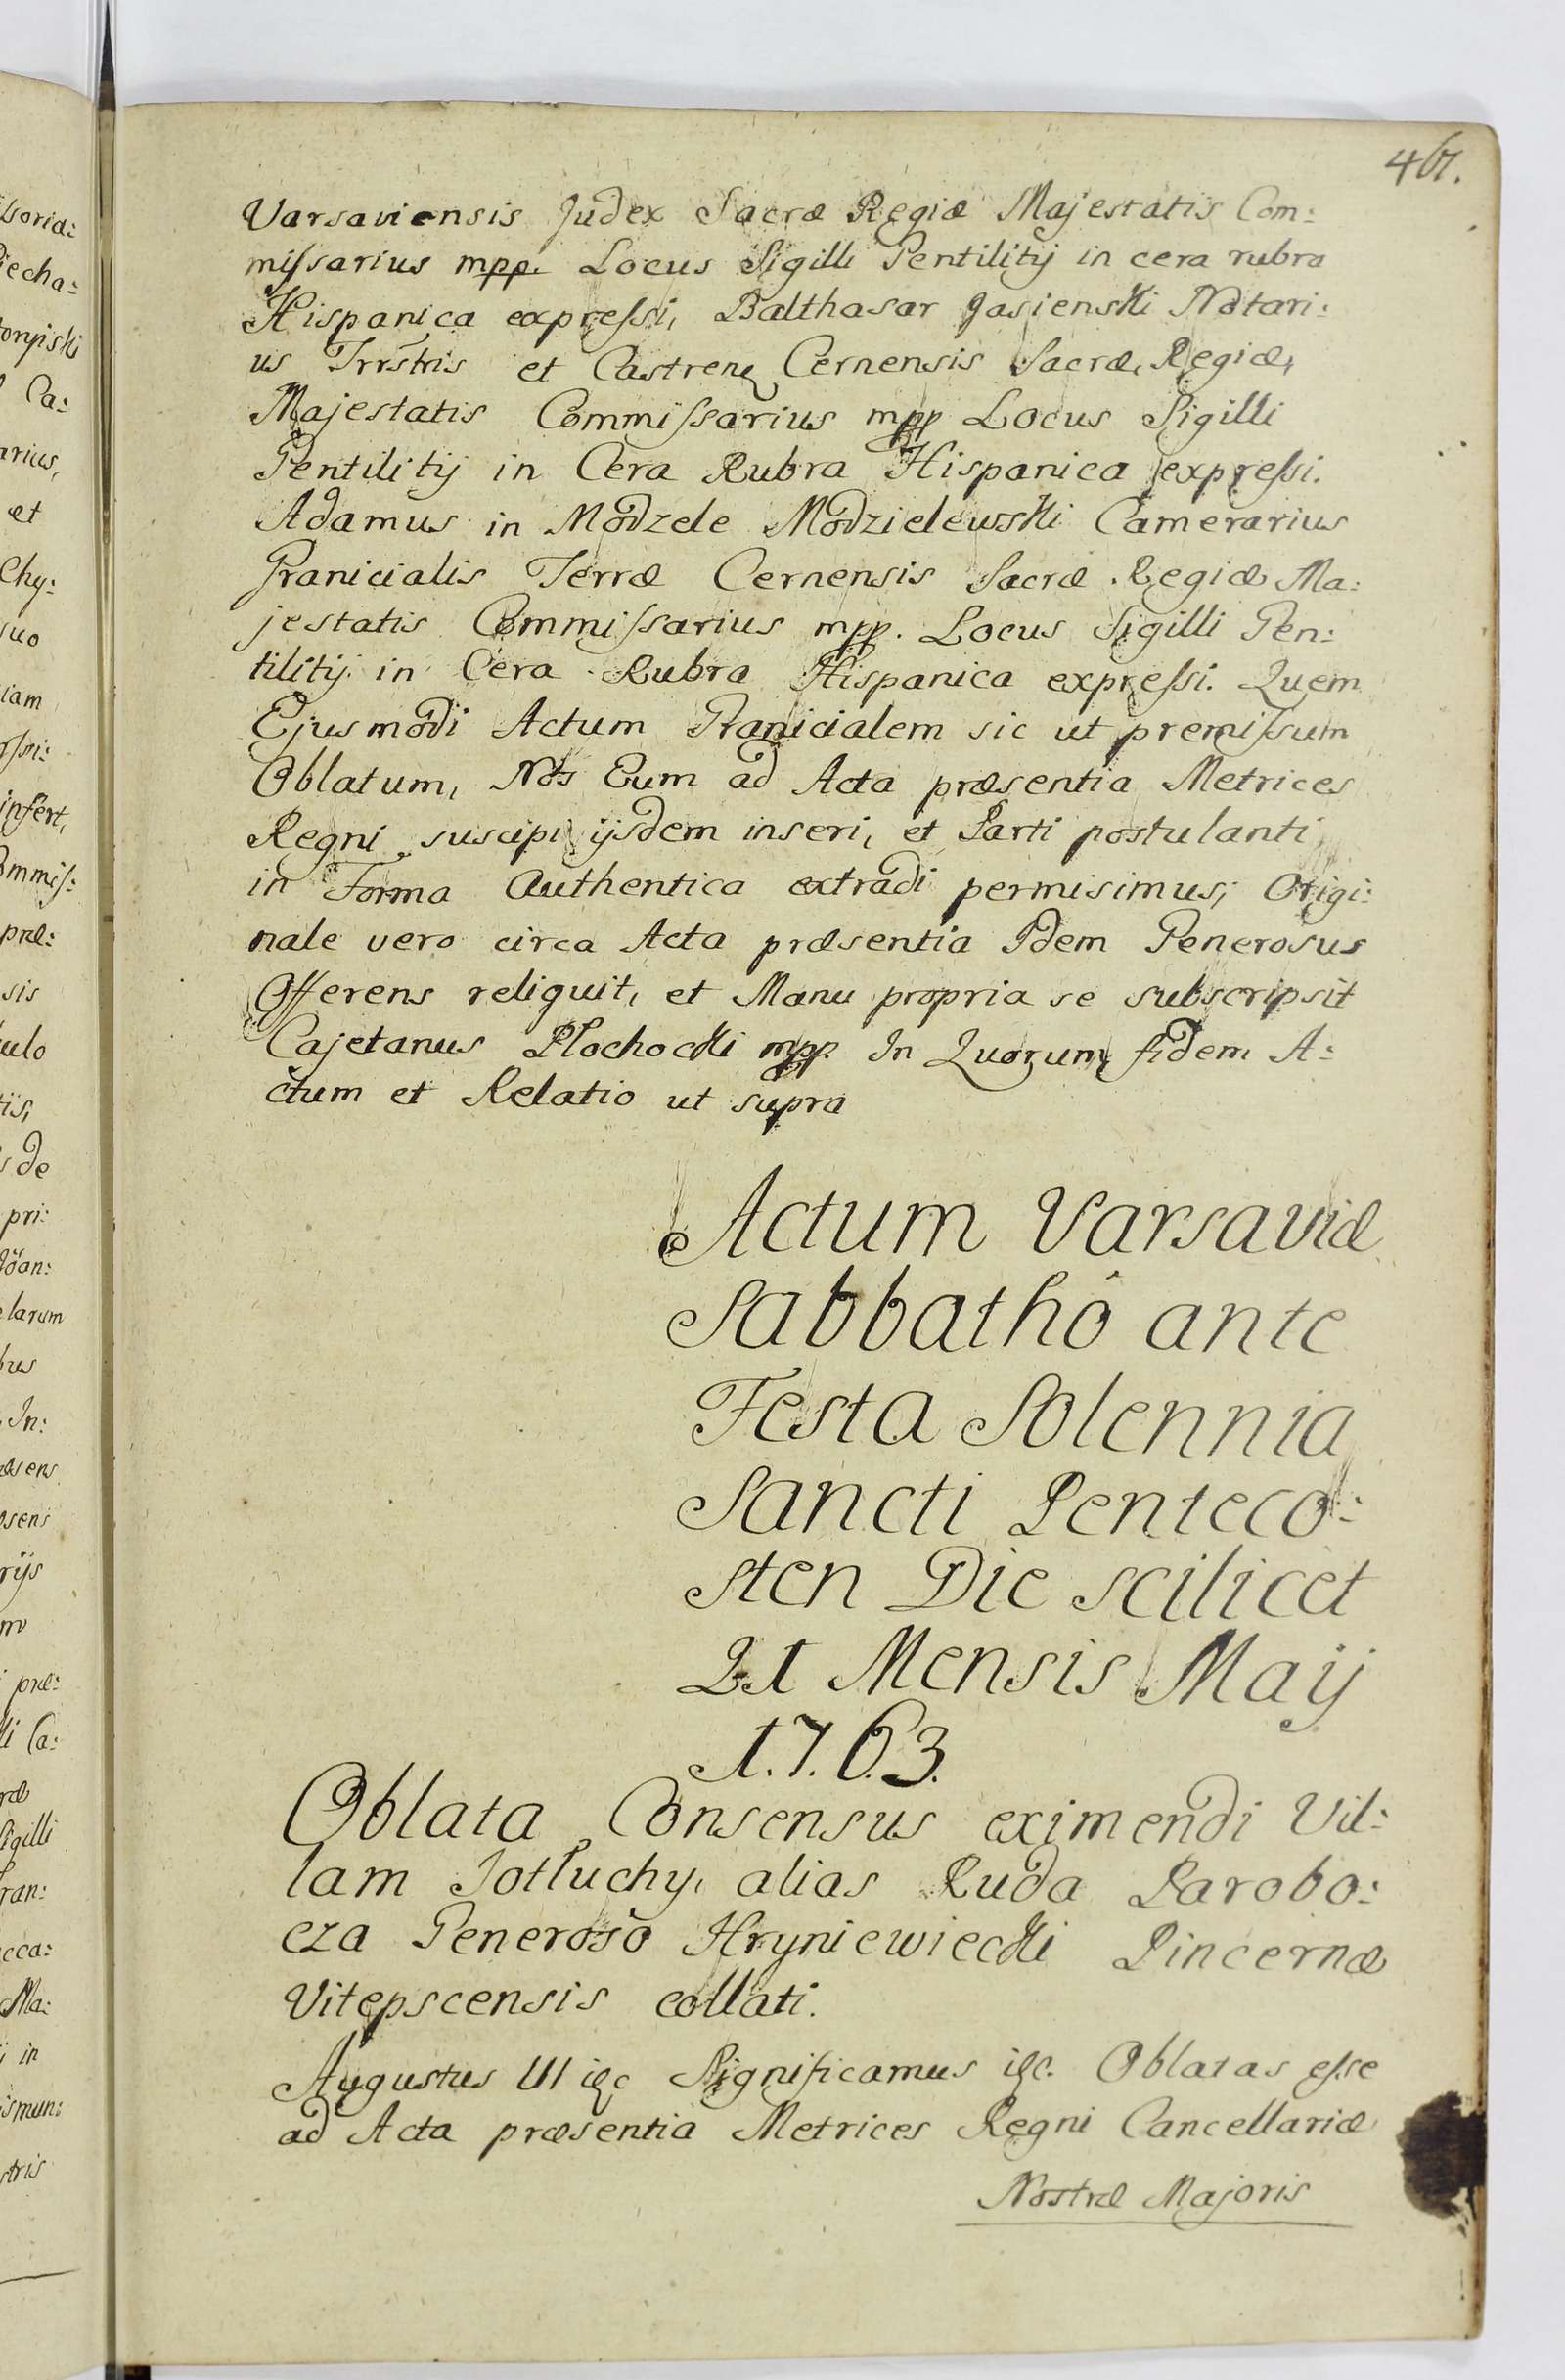 467.
Varsaviensis Judex Sacræ Regiæ Majestatis Com:
miſsarius mpp. Locus Sigilli Gentilitij in cera rubra
Hispanica expreſsi, Balthasar Jasienski Notari:
us Trrstris et Castren Cernensis Sacræ, Regiæ,
Majestatis Commiſsarius mpp Locus Sigilli
Gentilitij in Cera Rubra Hispanica expreſsi.
Adamus in Modzele Modzielewski Camerarius
Granicialis Terræ Cernensis Sacræ Regiæ Ma:
jestatis Commiſsarius mpp. Locus Sigilli Gen:
tilitij in Cera Rubra Hispanica expreſsi. Quem
Ejusmodi Actum Granicialem sic ut premiſsum
Oblatum, Nos Eum ad Acta præsentia Metrices
Regni suscipi ijsdem inseri, et Parti postulanti
in Forma Authentica extradi permisimus; Origi:
nale vero circa Acta præsentia Idem Generosus
Offerens reliquit, et Manu propria se subscripsit
Cajetanus Płochocki mpp. In Quorum fidem A:
ctum et Relatio ut supra
Actum Varsaviæ
Sabbathô ante
Festa Solennia
Sancti Penteco:
sten Die scilicet
21 Mensis Maij
1.7.6.3.
Oblata Consensus eximendi Vil:
lam Sotłuchy, alias Ruda Parobo:
cza Generoso Hryniewiecki Pincernæ
Vitepscensis collati.
Augustus III etc Significamus etc. Oblatas eſse
ad Acta præsentia Metrices Regni Cancellariæ
Nostræ Majoris